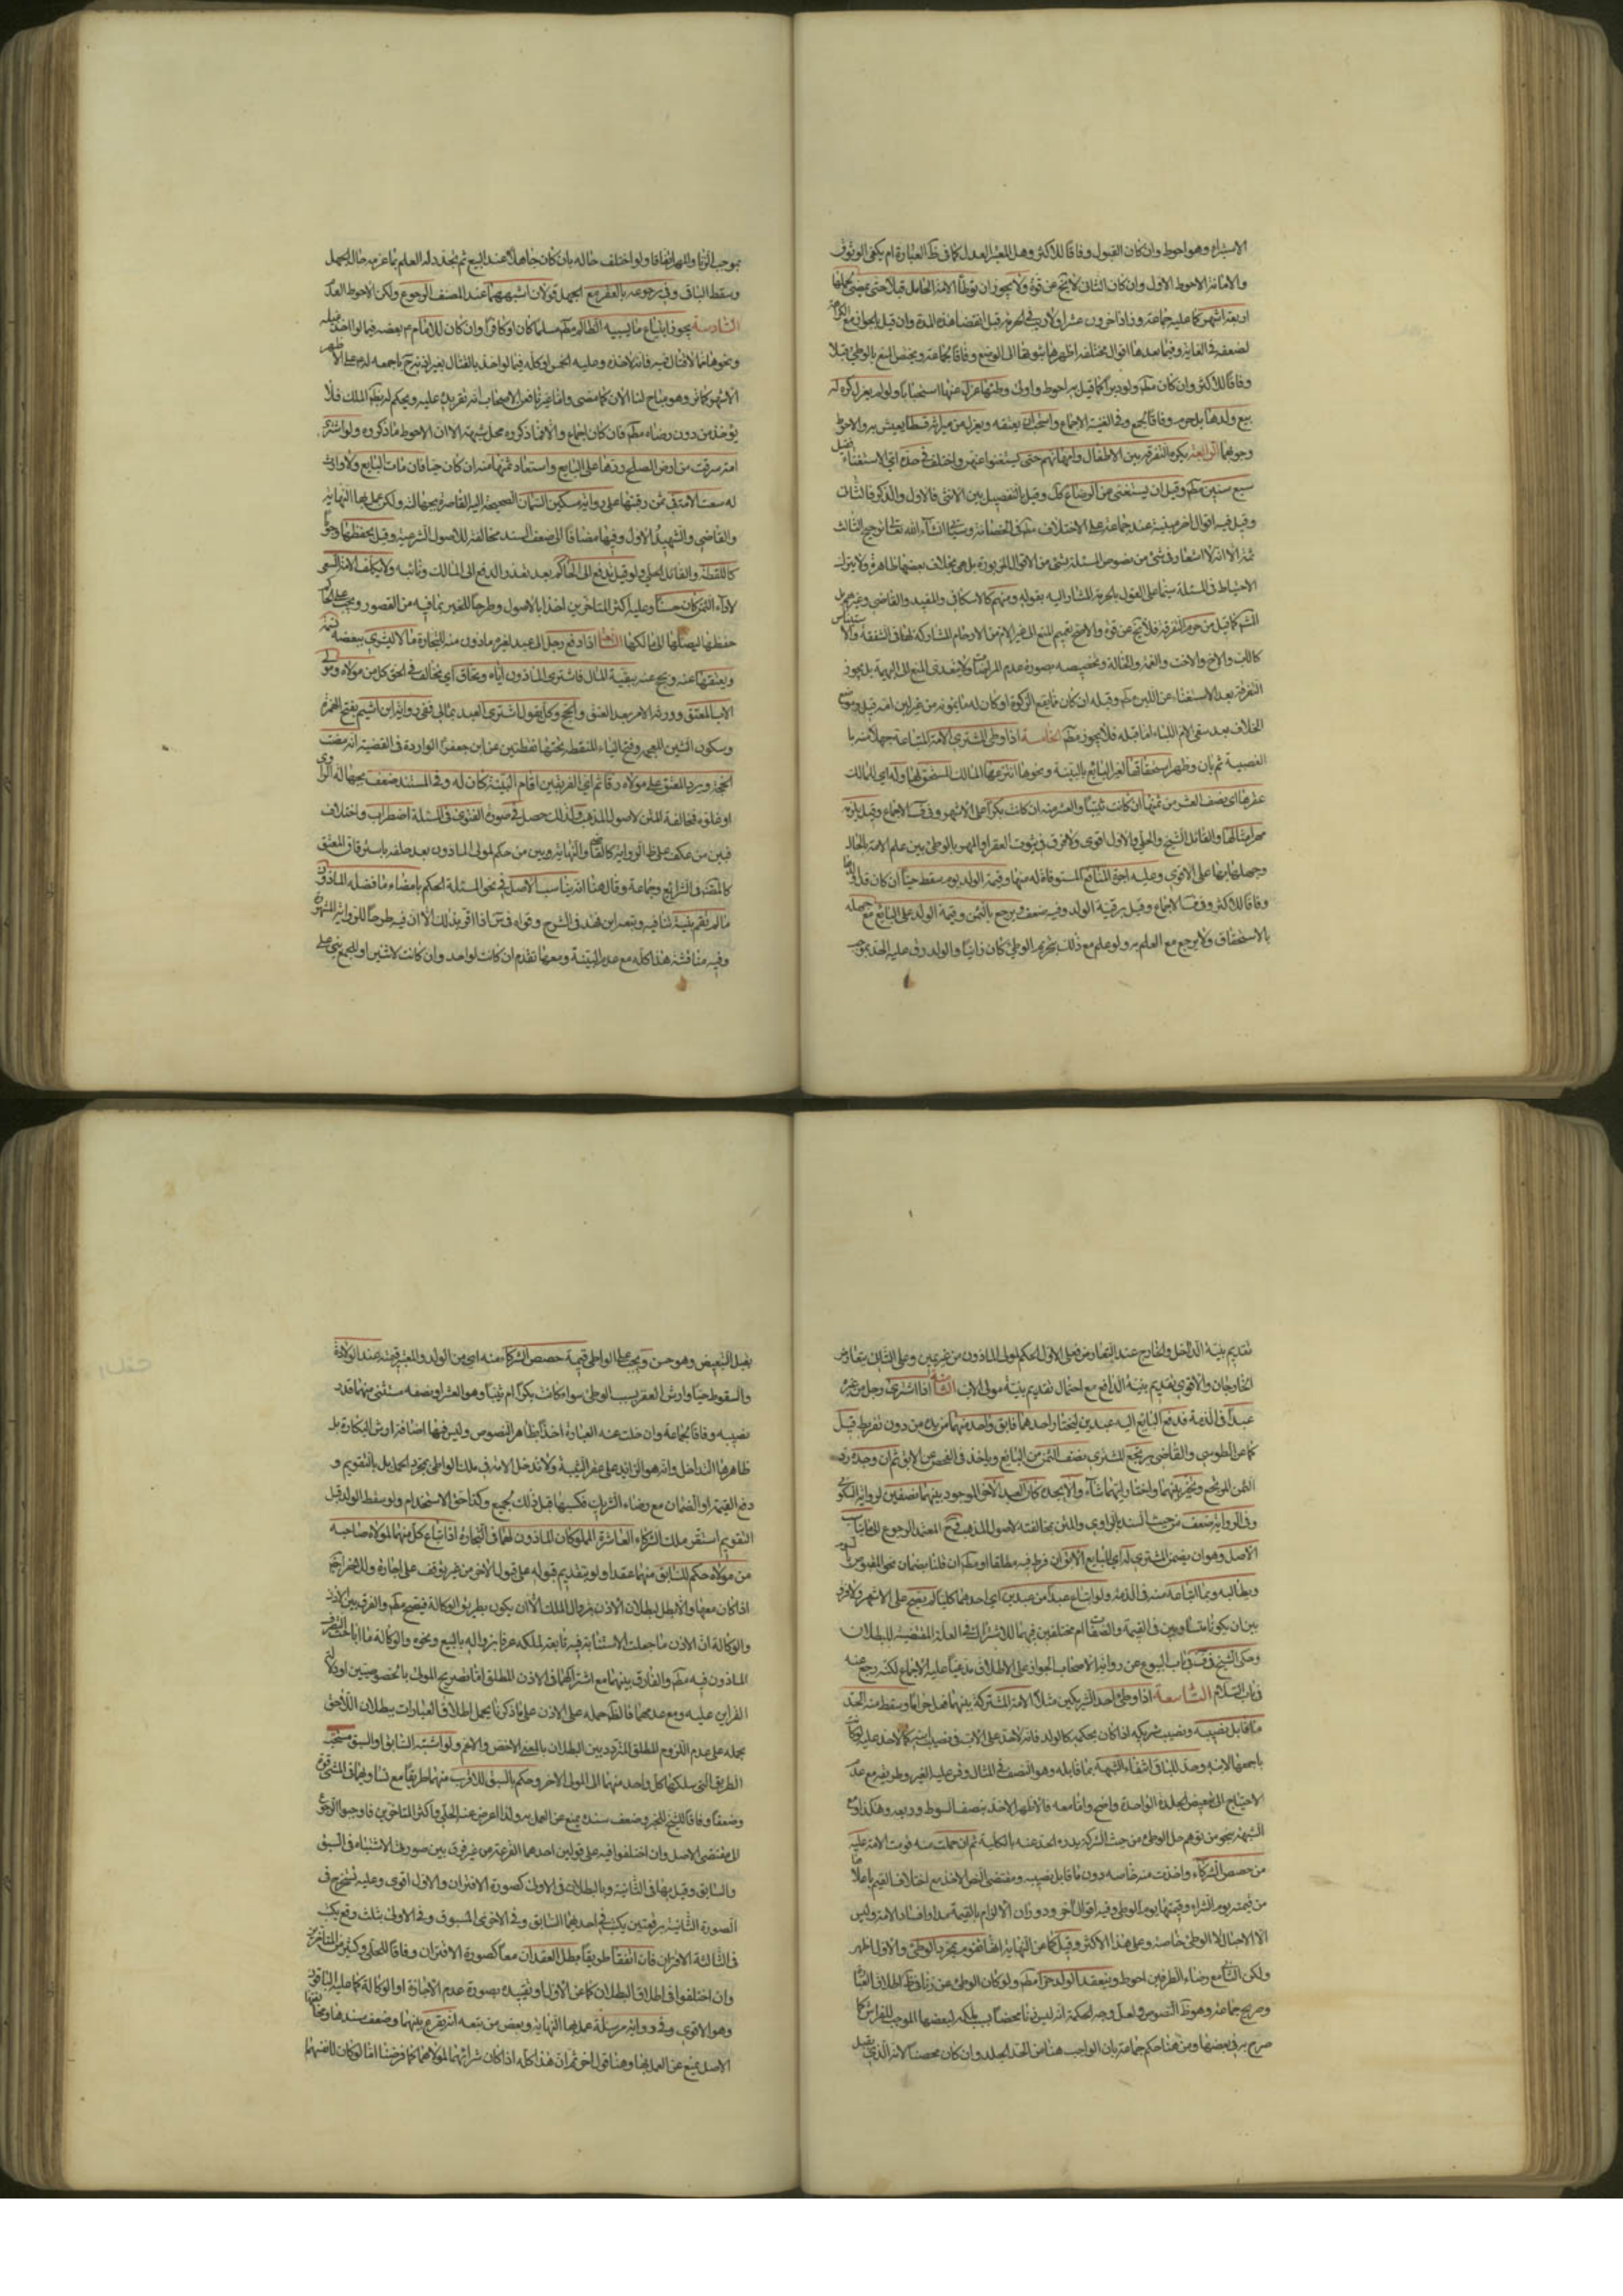 الاستبراء وهو احوط وان كان القبول وفاقا للاكثر وهل المعتبر العدل كما فى ظ العبارة ام يكفى الوثوق
والامانة الاحوط الاول وان كان الثانى لا يخ عن قوة ولا يجوز ان توطأ الامة الحامل قبلا حتى يمضى لحملها
اربعة اشهر كما عليه جماعة وزاد اخرون عشرا ولا ريب فى الحرمة قبل انقضاء هذه المدة وان قيل بالجواز مع الكراهة
لضعفه فى الغاية وفيما بعدها اقوال مختلفة اظهرها بثبوتها الى الوضع وفاقا لجماعة ويختص المنع بالوطى قبلا
وفاقا للاكثر وان كان مط ولو دبرا كما قيل به احوط واولى ولو وطئها عزل عنها استحبابا ولو لم يعزل كره له
بيع ولدها بل حرم وفاقا لجمع وفى الغنية الاجماع واستحب ان يعتقه ويعزل له من ميراثه قسطا يعيش به والاحوط
وجوبهما الرابعة يكره التفرقة بين الاطفال وامهاتهم حتى يستغنوا عنهن واختلف فى حده اى الاستغناء فقيل
سبع سنين مط وقيل ان يستغنى عن الرضاع كك وقيل بالتفصيل بين الانثى فالاول والذكر فالثانى
وقيل فيه اقوال اخر مبنية عند جماعة على الاختلاف فى الحضانة وسياتى انشاء الله تعالى ترجيح الثالث
ثمة الا انه لا اشعار فى شئ من نصوص المسئلة بشئ من الاقوال المزبورة بل هى بخلاف بعضها ظاهرة ولا يترك
الاحتياط فى المسئلة سيما على القول بالحرمة المشار اليه بقوله ومنهم كالاسكافى والمفيد والقاضى وغيرهم بل
اشهر كما قيل من حرم التفرقة فلا يخ عن قوة والاصح تعميم المنع الى غير الام من الارحام المشاركة لها فى الشفقة والاستيناس
كالاب والاخ والاخت والعمة والخالة وتخصيصه بصورة عدم المراضات ولا يتعدى المنع الى البهيمة بل يجوز
التفرقة بعد الاستغناء عن اللبن مط وقبله ان كان مما يقع الذكوة او كان له ما يمونه من غير لبن امه قيل وموضع
الخلاف بعد سقى الام اللباء اما قبله فلا يجوز مط الخامسة اذا وطى المشترى الامة المبتاعة جهلا منه با
لغصبية ثم بان وظهر استحقاقها لغير البائع بالبينة ونحوها انتزعها المالك المستحق لها وله اى للمالك
عقرها اى نصف العشر من ثمنها ان كانت ثيبا والعشر منه ان كانت بكرا على الاشهر وفى ف الاجماع وقيل يلزمه
مهر امثالها والقائل الشيخ والحلى والاول اقوى ولا فرق فى ثبوت العقر او المهر بالوطى بين علم الامة بالحال
وجهلها بها على الاقوى وعليه اجرة المنافع المستوفاة له منها وقيمة الولد يوم سقط حيا ان كان قد اولدها
وفاقا للاكثر وفى ف الاجماع وقيل برقية الولد وفيه ضعف ويرجع بالثمن وقيمة الولد على البائع مع جهله
بالاستحقاق ولا يرجع مع العلم به ولو علم مع ذلك بتحريم الوطى كان زانيا والولد رق عليه الحد بموجب
بموجب الزنا والمهر اتفاقا ولو اختلف حاله بان كان جاهلا عند البيع ثم تجدد له العلم بما غرمه حال الجهل
وسقط الباقى وفى رجوعه بالعقر مع الجهل قولان اشبههما عند المصنف الرجوع ولكن الاحوط العدم
السادسة يجوز ابتياع ما يسبيه الظالم مط مسلما كان او كافرا وان كان للامام ع بعضه فيما لو اخذ غيلة
ونحوها مما لا قتال فيه فانه لاخذه وعليه الخمس او كله فيما لو اخذ بالقتال بغير اذنه ع باجمعه له ع على الاظهر
الاشهر كما مر وهو مباح لنا الان كما مضى واما غيرنا فعن الاصحاب انه نقر يده عليه ويحكم له بظ الملك فلا
يؤخذ من دون رضاه مط فان كان اجماع والا فما ذكروه محل شبهة الا ان الاحوط ما ذكروه ولو اشترى
امة سرقت من ارض الصلح ردها على البائع واستعاد ثمنها منه ان كان حيا فان مات البائع ولا وارث
له سعت الامة فى ثمن رقبتها على رواية مسكين السمان الصحيحة اليه القاصرة بجهالته ولكن عمل بها النهاية
والقاضى والشهيد الاول وفيها مضافا الى ضعف السند مخالفة للاصول الشرعية وقيل يحفظها وجوبا
كاللقطة والقائل الحلى ولو قيل يدفع الى الحاكم بعد تعذر الدفع الى المالك ونائبه ولا يكلف الامة السعى
لاداء الثمن كان حسنا وعليه اكثر المتاخرين اخذا بالاصول وطرحا للخبر بما فيه من القصور ويجب على الحاكم
حفظها ليصلها الى مالكها السابعة اذا دفع رجل الى عبد لغيره ماذون منه للتجارة مالا ليشترى ببعضه نسمة
ويعتقها عنه ويحج عنه ببقية المال فاشترى الماذون اباه وتحاق اى تخالف فى الحق كل من مولاه ومولى
الاب المعتق وورثة الامر بعد العتق والحج وكل يقول اشترى العبد بمالى ففى رواية ابن اشيم بفتح الهمزة
وسكون الشين المعجمة وفتح الياء المنقطة تحتها نقطتين عن ابى جعفر ع الواردة فى القضية انه مضت
الحجة ويرد المعتق على مولاه رقا ثم اى الفريقين اقام البينة كان له وفى المستند ضعف بجهالة الراوى
او غلوه فخالفة المتن لاصول المذهب ولذلك حصل فى صون الفتوى فى المسئلة اضطراب واختلاف
فبين من عكف على ظ الرواية كالقاضى والنهاية وبين من حكم لمولى الماذون بعد حلفه باسترقاق المعتق
كالمصنف فى الشرائع وجماعة وقال هنا انه يناسب الاصل فى نحو المسئلة الحكم بامضاء ما فعله الماذون
ما لم تقم بينة تنافيه وتبعه ابن فهد فى الشرح وقواه فى س اذا اقر بذلك الا ان فيه طرحا للرواية المشهورة
وفيه مناقشة هذا كله مع عدم البينة ومعها تقدم ان كانت لواحد وان كانت لاثنين او للجمع بنى على
تقديم بينة الداخل والخارج عند التعارض فعلى الاول الحكم لمولى الماذون من غير يمين وعلى الثانى يتعارض
الخارجان والاقوى تقديم بينة الدافع مع احتمال تقديم بينة مولى الاب الثامنة اذا اشترى رجل من غيره
عبدا فى الذمة فدفع البائع اليه عبدين ليختار احدهما فابق واحد منهما من يده من دون تفريط قيل
كما عن الطوسى والقاضى يرتجع المشترى نصف الثمن من البائع وياخذ فى الفحص عن الابق ثم ان وجده رد
الثمن المرتجع وتخير بينهما واختار ايهما شاء والا يجده كان العبد الاخر الموجود بينهما نصفين لرواية السكونى
وفى الرواية ضعف من حيث السند بالراوى والمتن بمخالفته لاصول المذهب فح المعتمد الرجوع الى ما يناسب
الاصل وهو ان يضمن المشترى له اى للبائع الابق ان فرط فيه مطلقا او مط ان قلنا بضمان نحو المقبوض بالسوم
ويطالبه وبما ابتاعه منه فى الذمة ولو ابتاع عبدا من عبدين اى احدهما كليا لم يصح على الاشهر ولا فرق
بين ان يكونا متساويين فى القيمة والصفات ام مختلفين فيهما للاشتراك فى العلة المقتضية للبطلان
وحكى الشيخ فى ف فى باب البيوع عن رواية الاصحاب الجواز على الاطلاق مدعيا عليه الاجماع لكنه رجع عنه
فى باب السلم التاسعة اذا وطى احد الشريكين مثلا الامة المشتركة بينهما فعل حراما وسقط منه الحد
ما قابل نصيبه ونصيب شريكه اذا كان بحكمه كالولد فانه لا حد على الاب فى نصيب ابنه كما لا حد عليه لو كانت
باجمعها لابنه وحد للباقى انتفاء الشبهة بما قابله وهو النصف فى المثال وفرض عليه الغير وطريقه مع عدم
الاحتياج الى تبعيض الجلدة الواحدة واضح واما معه فالاظهر الاخذ بنصف السوط وربعه وهكذا ومع
الشبهة بنحو من توهم حل الوطى من حيث الشركة يدرء الحد عنه بالكلية ثم ان حملت منه قومت الامة عليه
من حصص الشركاء واخذت منه خاصة دون ما قابل نصيبه ومقتضى النص الاخذ مع اختلاف القيم باعلاها
من قيمته يوم الشراء وقيمتها يوم الوطى وفيه اقوال اخر ودوران الالزام بالقيمة مدار افساد الامة وليس
الا الاحبال لا الوطى خاصة وعلى هذا الاكثر وقيل كما عن النهاية انها تقوم بمجرد الوطى والاول اظهر
ولكن الثانى مع رضاء الطرفين احوط وينعقد الولد حرا مط ولو كان الوطى عن زنا فى ظ اطلاق العبارة
وصريح جماعة وهو ظ النصوص ولعل وجه الحكمة انه ليس زنا محضا بسبب ملكه لبعضها الموجب للفراش كما
صرح به فى بعضها ومن هنا حكم جماعة بان الواجب هنا من الحد الجلد وان كان محصنا لانه الذى يقبل
يقبل التبعيض وهو حسن ويجب على الواطى قيمة حصص الشركاء منه اى من الولد والمعتبر قيمته عند الولادة
والسقوط حيا وارش العقر بسبب الوطى سواء كانت بكرا ام ثيبا وهو العشر او نصفه مستثنى منهما قدر
نصيبه وفاقا لجماعة وان خلت عنه العبارة اخذا بظاهر النصوص وليس فيها اضافة ارش البكارة بل
ظاهرها التداخل وانه هو الزايد على عقر الثيبة ولا تدخل الامة فى ملك الواطى بمجرد الحمل بل بالتقويم و
دفع القيمة او الضمان مع رضاء الشركاء فكسبها قبل ذلك للجميع وكذا حق الاستخدام ولو سقط الولد قبل
التقويم استقر ملك الشركاء العاشرة المملوكان الماذون لهما فى التجارة اذا ابتاع كل منهما لمولاه صاحبه
من مولاه حكم للسابق منهما عقدا ولو بتقديم قبوله على قبول الاخر من غير توقف على اجازة وللاخر اجماع
اذا كان معها والا بطل لبطلان الاذن بزوال الملك الا ان يكون بطريق الوكالة فيصح مط والفرق بين الاذن
والوكالة ان الاذن ما جعلت الاستنابة فيه تابعة لملكه عرفا بزواله بالبيع ونحوه والوكالة ما اباحت التصرف
الماذون فيه مط والفارق بينهما مع اشتراكهما فى الاذن المطلق اما تصريح المولى بالخصوصيتين او دلالة
القراين عليه ومع عدمهما فالظ حمله على الاذن على ما ذكرنا يحمل اطلاق العبارات ببطلان اللاحق
بحمله على عدم اللزوم المطلق المتردد بين البطلان بالمعنى الاخص والاعم ولو اشتبه السابق او السبق مسحت
الطريق التى سلكها كل واحد منهما الى المولى الاخر وحكم بالسبق للاقرب منهما طريقا مع تساويهما فى المشى قوة
وضعفا وفاقا للشيخ للخبر وضعف سنده يمنع عن العمل به ولذا اعرض عنه الحلى واكثر المتاخرين فاوجبوا الرجوع
الى مقتضى الاصل وان اختلفوا فيه على قولين احدهما القرعة من غير فرق بين صورتى الاشتباه فى السبق
والسابق وقيل بها فى الثانية وبالبطلان فى الاولى كصورة الاقتران والاول اقوى وعليه تستخرج فى
الصورة الثانية برقعتين يكتب فى احدهما السابق وفى الاخرى المسبوق وفى الاولى بثلث رقع يكتب
فى الثالثة الاقتران فان اتفقا طريقا بطل العقدان معا كصورة الاقتران وفاقا للحلى وكثير من المتاخرين
وان اختلفوا فى اطلاق البطلان كما عن الاول او تقييده بصورة عدم الاجازة او الوكالة كما عليه الباقون
وهو الاقوى وفى رواية مرسلة عمل بها النهاية وبعض من تبعه انه يقرع بينهما وضعف سندها ومخالفتها
الاصل يمنع عن العمل بها وهنا قول اخر ثم ان هذا كله اذا كان شرائهما لمولاهما كما فرضنا اما لو كان لانفسهما